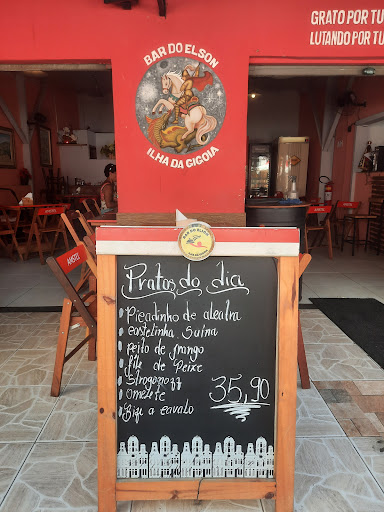 GRATO POR TU
LUTANDO POR TU
BAR DO ELSON
ILHA DA GIGOIA
AMSTEL
AMSTEL
BAR DO ELSON
Pratos do dia
• Picadinho de alcatra
• costelinha suína
• peito de frango
• filé de Peixe
• Strogonoff
• omelete
• Bife a cavalo
35,90